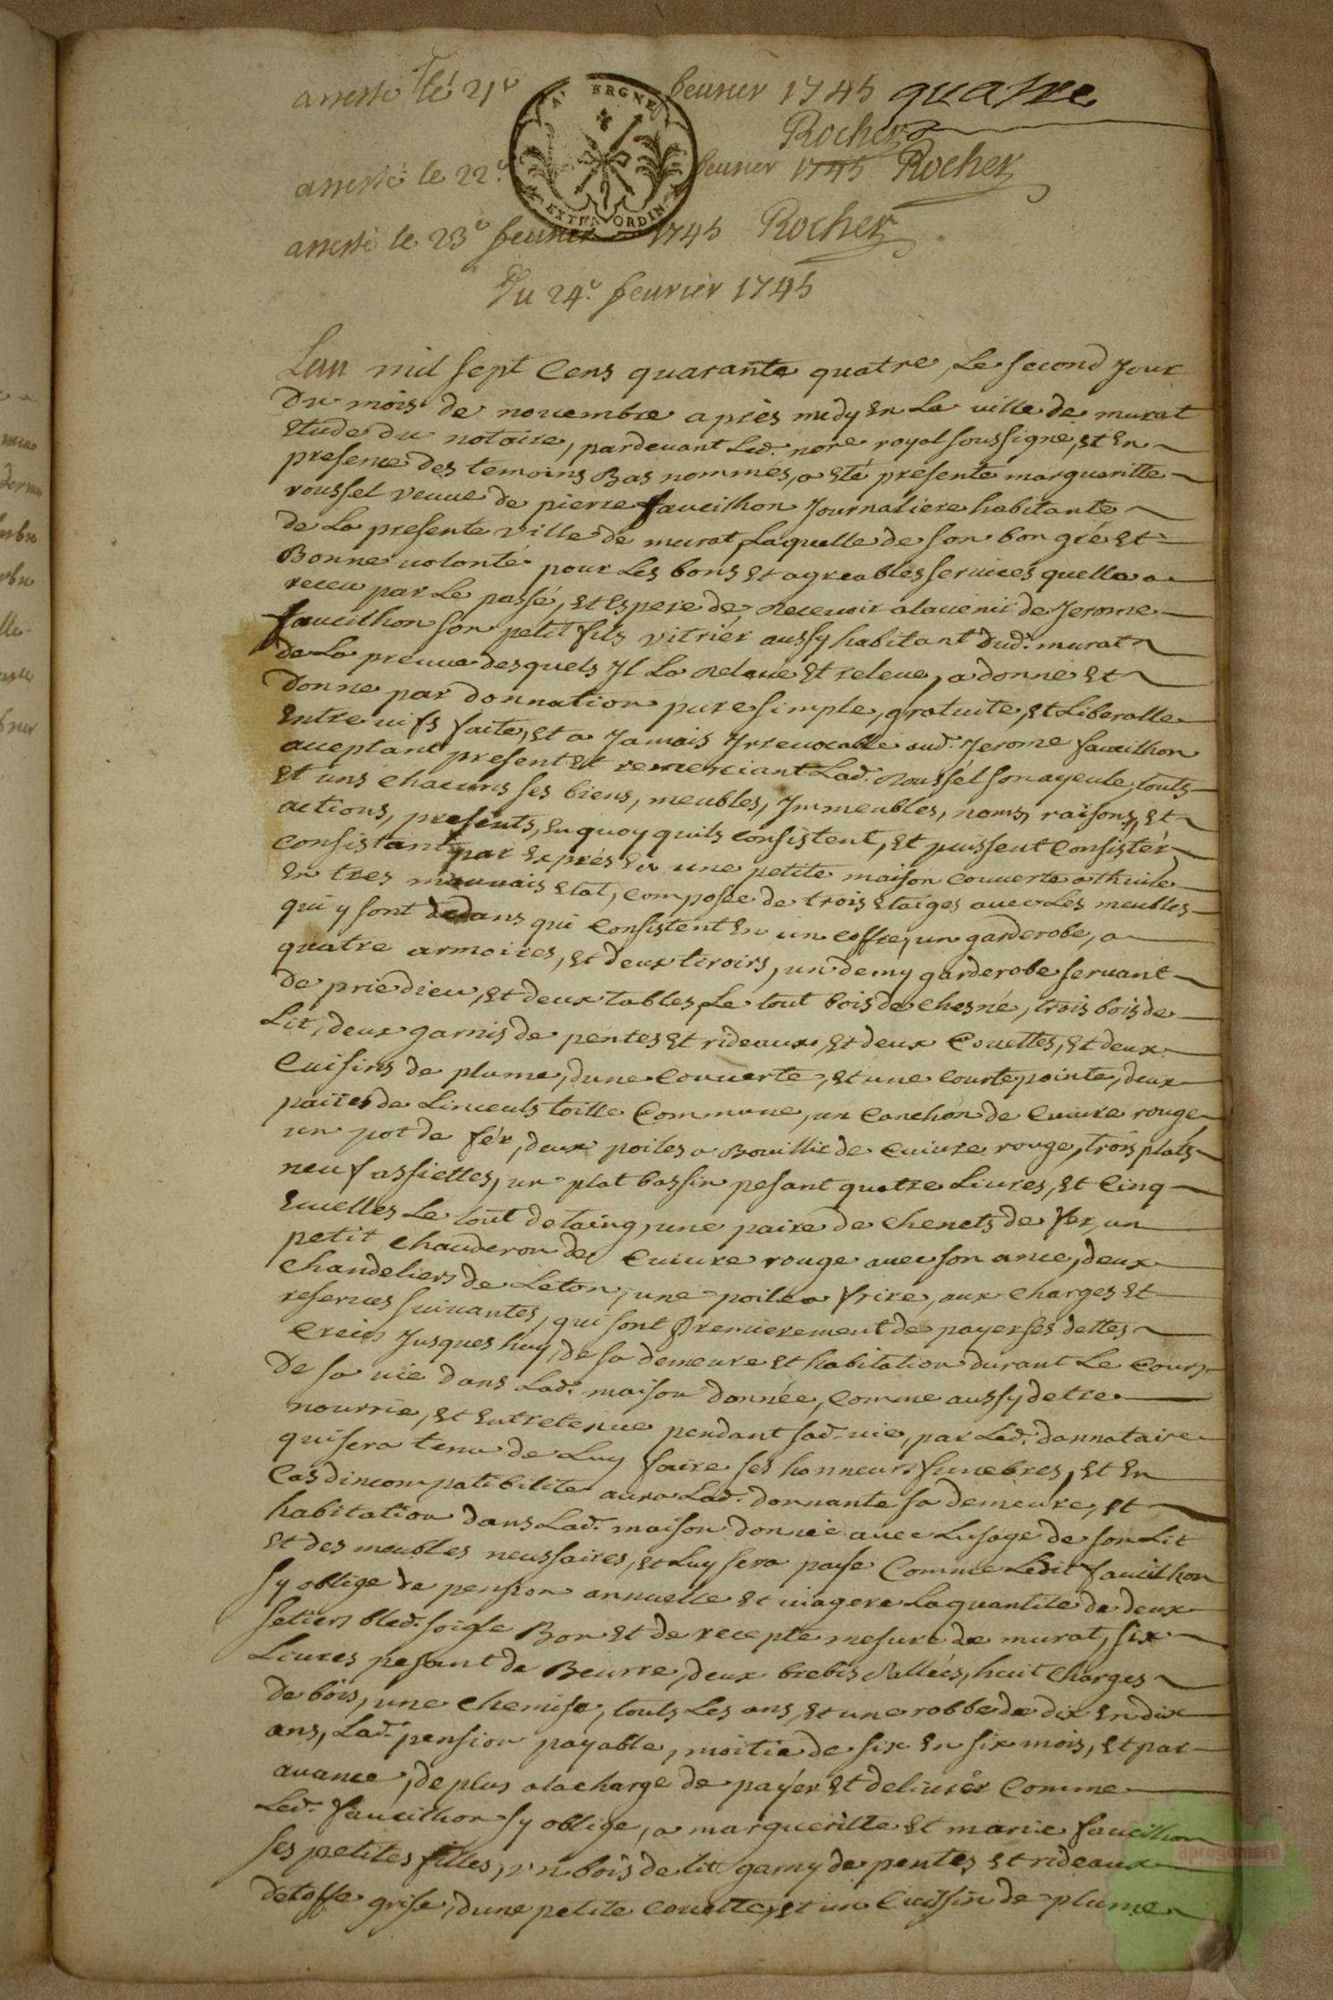 arresté le 21e feurier 1745 quatre
Rocher
arresté le 22e feurier 1745 Rocher
AVERGNE
EXTRAORDIN
arresté le 23e feurier 1745 Rocher
Du 24e feurier 1745
Lan mil sept Cens quarante quatre, Le second Jour
Du mois de nouembre apres midy En La ville de murat
Etude du notaire, pardeuant Led. nore royal soussigné, et En
presence des temoins Bas nommes, a eté presente marguaritte
roussel veuue de pierre faucilhon Journaliere habitante
de La presente ville de murat, Laquelle de son bon gré et
Bonne volonté pour Les bons et agreables seruices quelle a
receu par Le passé, et Espere de Receuoir alauenir de Jerome
faucilhon son petit fils vitrier aussy habitant dud. murat
de La preuue desquels Il La Releue et releue, a donné et
Donne par donnation pure simple, gratuite, et Liberalle
Entre uifs faite, et a Jamais Irreuocable aud. Jerome faucilhon
acceptant present et remerciant Lad. Roussel son ayeule, touts
et uns chacuns ses biens, meubles, Immeubles, noms, raisons, et
actions, presents, En quoy quils consistent, et puissent Consister
Consistant par Exprés En une petite maison couuerte a thuile
En tres mauuais Etat, composée de trois Etaiges auec Les meubles
qui y sont dedans qui Consistent En un coffre, un garderobe, a
quatre armoires, et deux tiroirs, un demy garderobe seruant
de prie dieu, et deux tables, Le tout bois de chesne, trois bois de
Lit, deux garnis de pentes et rideaux, et deux Couettes, et deux
Cuisins de plume, dune Couuerte, et une Courtepointe, deux
paires de Linceuls toille Commune, un Conchon de Cuiure rouge
un pot de fér, deux poiles a Bouillie de Cuiure rouge, trois plats
neuf assiettes, un plat bassin pesant quatre Liures, et Cinq
Ecuelles Le tout detaing, une paire de Chenets de fer, un
petit chauderon de Cuiure rouge auec son ance, deux
chandeliers de Leton, une poile a frire, aux charges et
reserues suiuantes, qui sont premierement de payer ses dettes
Creées Jusques huy, de sa demeure et habitation durant Le Cours
De sa uie dans Lad. maison donnée, Comme aussy detre
nourrie, et Entretenue pendant sad. uie, par Led. donnataire
qui sera tenu de Luy faire ses honneurs funebres, et En
Cas dincompatibilite aura Lad. donnante sa demeure, et
habitation dans Lad. maison donnée auec Lusage de son Lit
et des meubles necessaires, et Luy sera payé Comme Ledit faucilhon
sy oblige de pension annuelle et uiagere La quantite de deux
setiers bled. soigle Bon et de recepte mesure de murat, six
Liures pesant de Beurre, deux brebis sallées, huit charges
de bois, une chemise, touts Les ans, et une robbe de dix En dix
ans, Lad. pension payable, moitie de six En six mois, et par
auance, de plus a la charge de payer et deliurer Comme
Led. faucilhon sy oblige, a margueritte et marie faucilhon
ses petites filles, un bois de lit garny de pentes et rideaux
detoffe grise, dune petite couette, et un Cuissin de plume
aprogemere